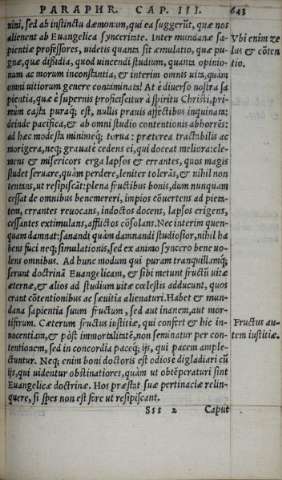 PARAPHR. CAP. III. 643
nini, sed ab instinctu dæmonum, qui ea suggerūt, quæ nos
alienent ab Euangelica synceritate. Inter mundanæ sa-
pientiæ professores, uidetis quanta sit æmulatio, quæ pu-
gnæ, quæ dissidia, quod uincendi studium, quanta opinio-
num ac morum inconstantia, & interim omnis uita, quàm
omni uitiorum genere contaminata! At è diuerso nostra sa
pientia, quæ è supernis proficiscitur à spiritu Christi, pri-
mùm casta puraq; est, nullis prauis affectibus inquinata:
deinde pacifica, & ab omni studio contentionis abhorrēs:
ad hæc modesta minimeq; torua: præterea tractabilis ac
morigera, neq; grauatè cedens ei, qui doceat meliora: cle-
mens & misericors erga lapsos & errantes, quos magis
studet seruare, quàm perdere, leniter tolerās, & nihil non
tentans, ut resipiscāt: plena fructibus bonis, dum nunquam
cessat de omnibus benemereri, impios cōuertens ad piem-
tem, errantes reuocans, indoctos docens, lapsos erigens,
cessantes extimulans, afflictos cōsolans. Nec interim quen-
quam damnat: sanandi quàm damnandi studiosior, nihil ha
bens fuci neq; simulationis, sed ex animo syncero bene uo-
lens omnibus. Ad hunc modum qui puram tranquillamq́;
serunt doctrinā Euangelicam, & sibi metunt fructū uitæ
æternæ, & alios ad studium uitæ cœlestis adducunt, quos
erant cōtentionibus ac sæuitia alienaturi. Habet & mun-
dana sapientia suum fructum, sed aut inanem, aut mor-
tiferum. Cæterum fructus iustitiæ, qui confert & hic in-
nocentiam, & pòst immortalitatē, non seminatur per con-
tentionem, sed in concordia paceq́; ijs, qui pacem ample-
ctuntur. Neq; enim boni doctoris est odiose digladiari cū
ijs, qui uidentur obstinatiores, quàm ut obtēperaturi sint
Euangelicæ doctrinæ. Hos præstat suæ pertinaciæ relin-
quere, si spes non est fore ut resipiscant.
Sss 2 Caput
Vbi enim ze
lus & cōten
tio.
Fructus au-
tem iustitiæ.